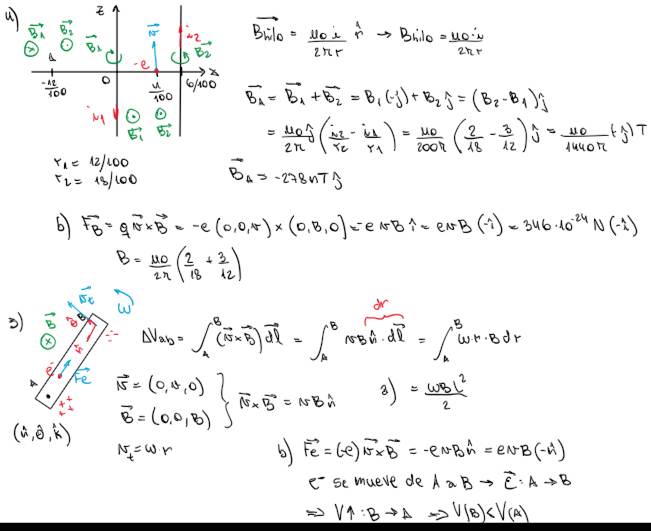 z
B⃗₁ B⃗₂
⊗ ⊙
A
-12/100
0
B⃗₁
v⃗
-e
i₂
B⃗₂
4/100
6/100
x
i₁
⊙ ⊙
B⃗₁ B⃗₂
r₁ = 12/100
r₂ = 18/100
B⃗hilo = μ₀·i/2πr n̂ → Bhilo = μ₀·i/2πr
B⃗A = B⃗₁ + B⃗₂ = B₁(-ĵ) + B₂ĵ = (B₂ - B₁)ĵ
= μ₀ĵ/2π (i₂/r₂ - i₁/r₁) = μ₀/200π (2/18 - 3/12)ĵ = μ₀/1440π (-ĵ) T
B⃗A = -278nTĵ
b) F⃗B = q v⃗ × B⃗ = -e (0,0,v) × (0,B,0) = -e vB î = evB (-î) = 346·10⁻²⁴ N (-î)
B = μ₀/2π (2/18 + 3/12)
3)
B⃗
⊗
v⃗t
B
ω
e⁻
F⃗e
A
(n̂, θ̂, k̂)
dr
ΔVab = ∫_A^B (v⃗×B⃗) dl⃗ = ∫_A^B vBn̂·dl⃗ = ∫_A^B ω·r·B dr
v⃗ = (0,v,0)
B⃗ = (0,0,B)
} v⃗×B⃗ = vBn̂
a) = ωBL²/2
vt = ω·r
b) F⃗e = (-e) v⃗×B⃗ = -evBn̂ = evB(-n̂)
e⁻ se mueve de A a B → E⃗: A → B
⇒ V↑: B → A ⇒ V(B) < V(A)